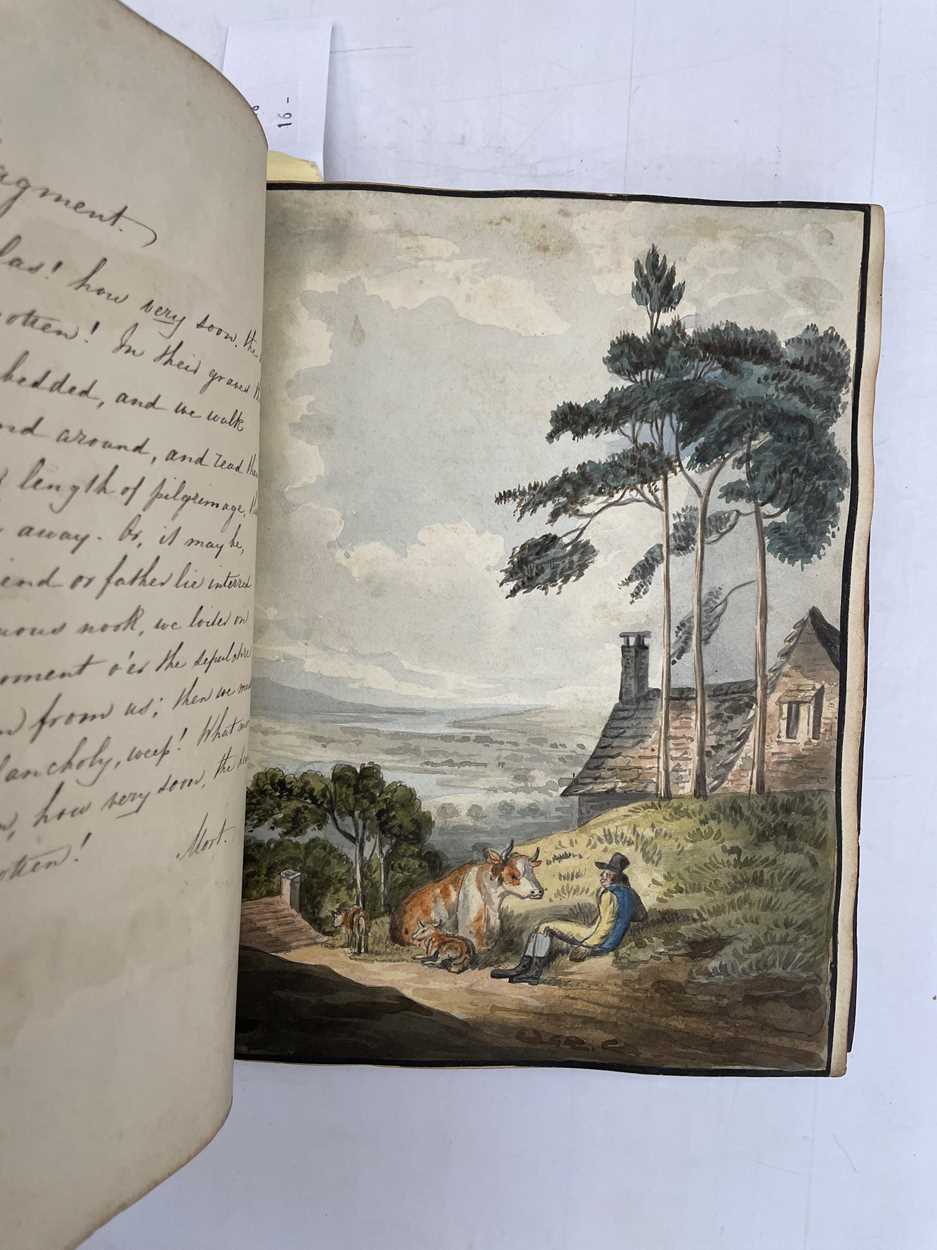 16 -
agment.
las! how very soon, the
otten! In their graves th
bedded, and we walk
nd around, and read their
length of pilgrimage,
away. Or, it may be,
iend or father lie interred
uous nook, we loiter on
oment o'er the sepulchre
from us; then we mu
lancholy, weep! What
how very soon, the
otten!
Mort.